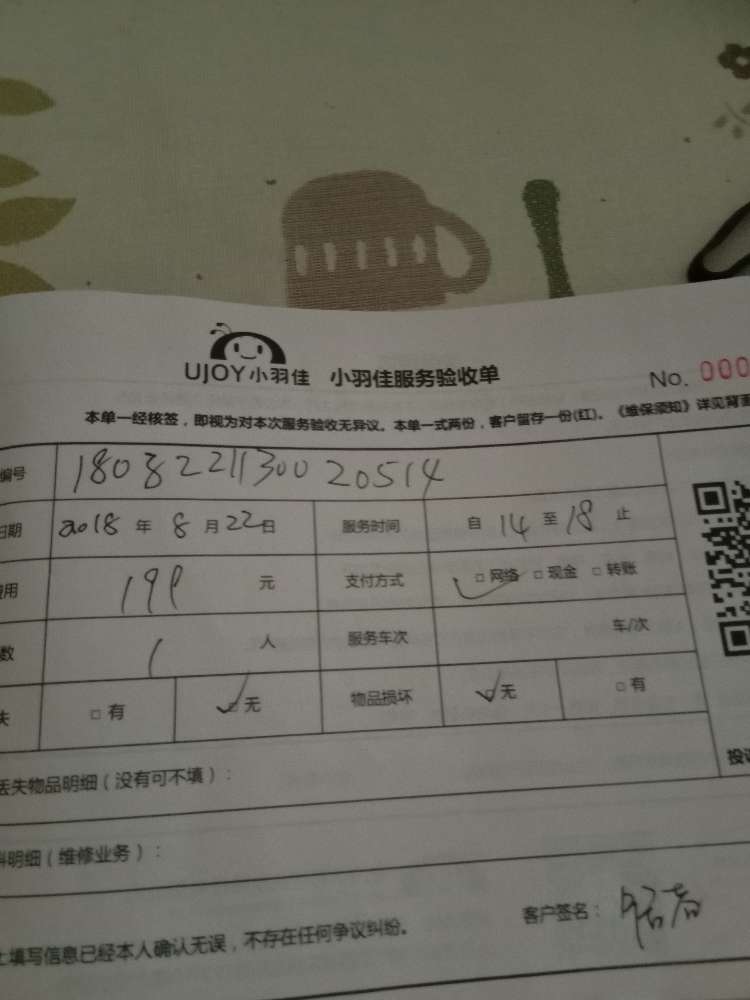 UJOY小羽佳 小羽佳服务验收单 No. 000
本单一经核签，即视为对本次服务验收无异议。本单一式两份，客户留存一份(红)。《维保须知》详见背面
编号 18082221130020514
日期 2018 年 8 月 22 日 服务时间 自 14 至 18 止
用 199 元 支付方式 □网络 □现金 □转账
数 1 人 服务车次 车/次
失 □有 □无 物品损坏 □无 □有
投
丢失物品明细（没有可不填）：
料明细（维修业务）：
上填写信息已经本人确认无误，不存在任何争议纠纷。 客户签名：